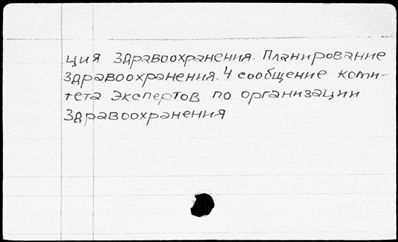 ция Здравоохранения. Планирование
Здравоохранения. 4 сообщение коми-
тета Экспертов по организации
Здравоохранения